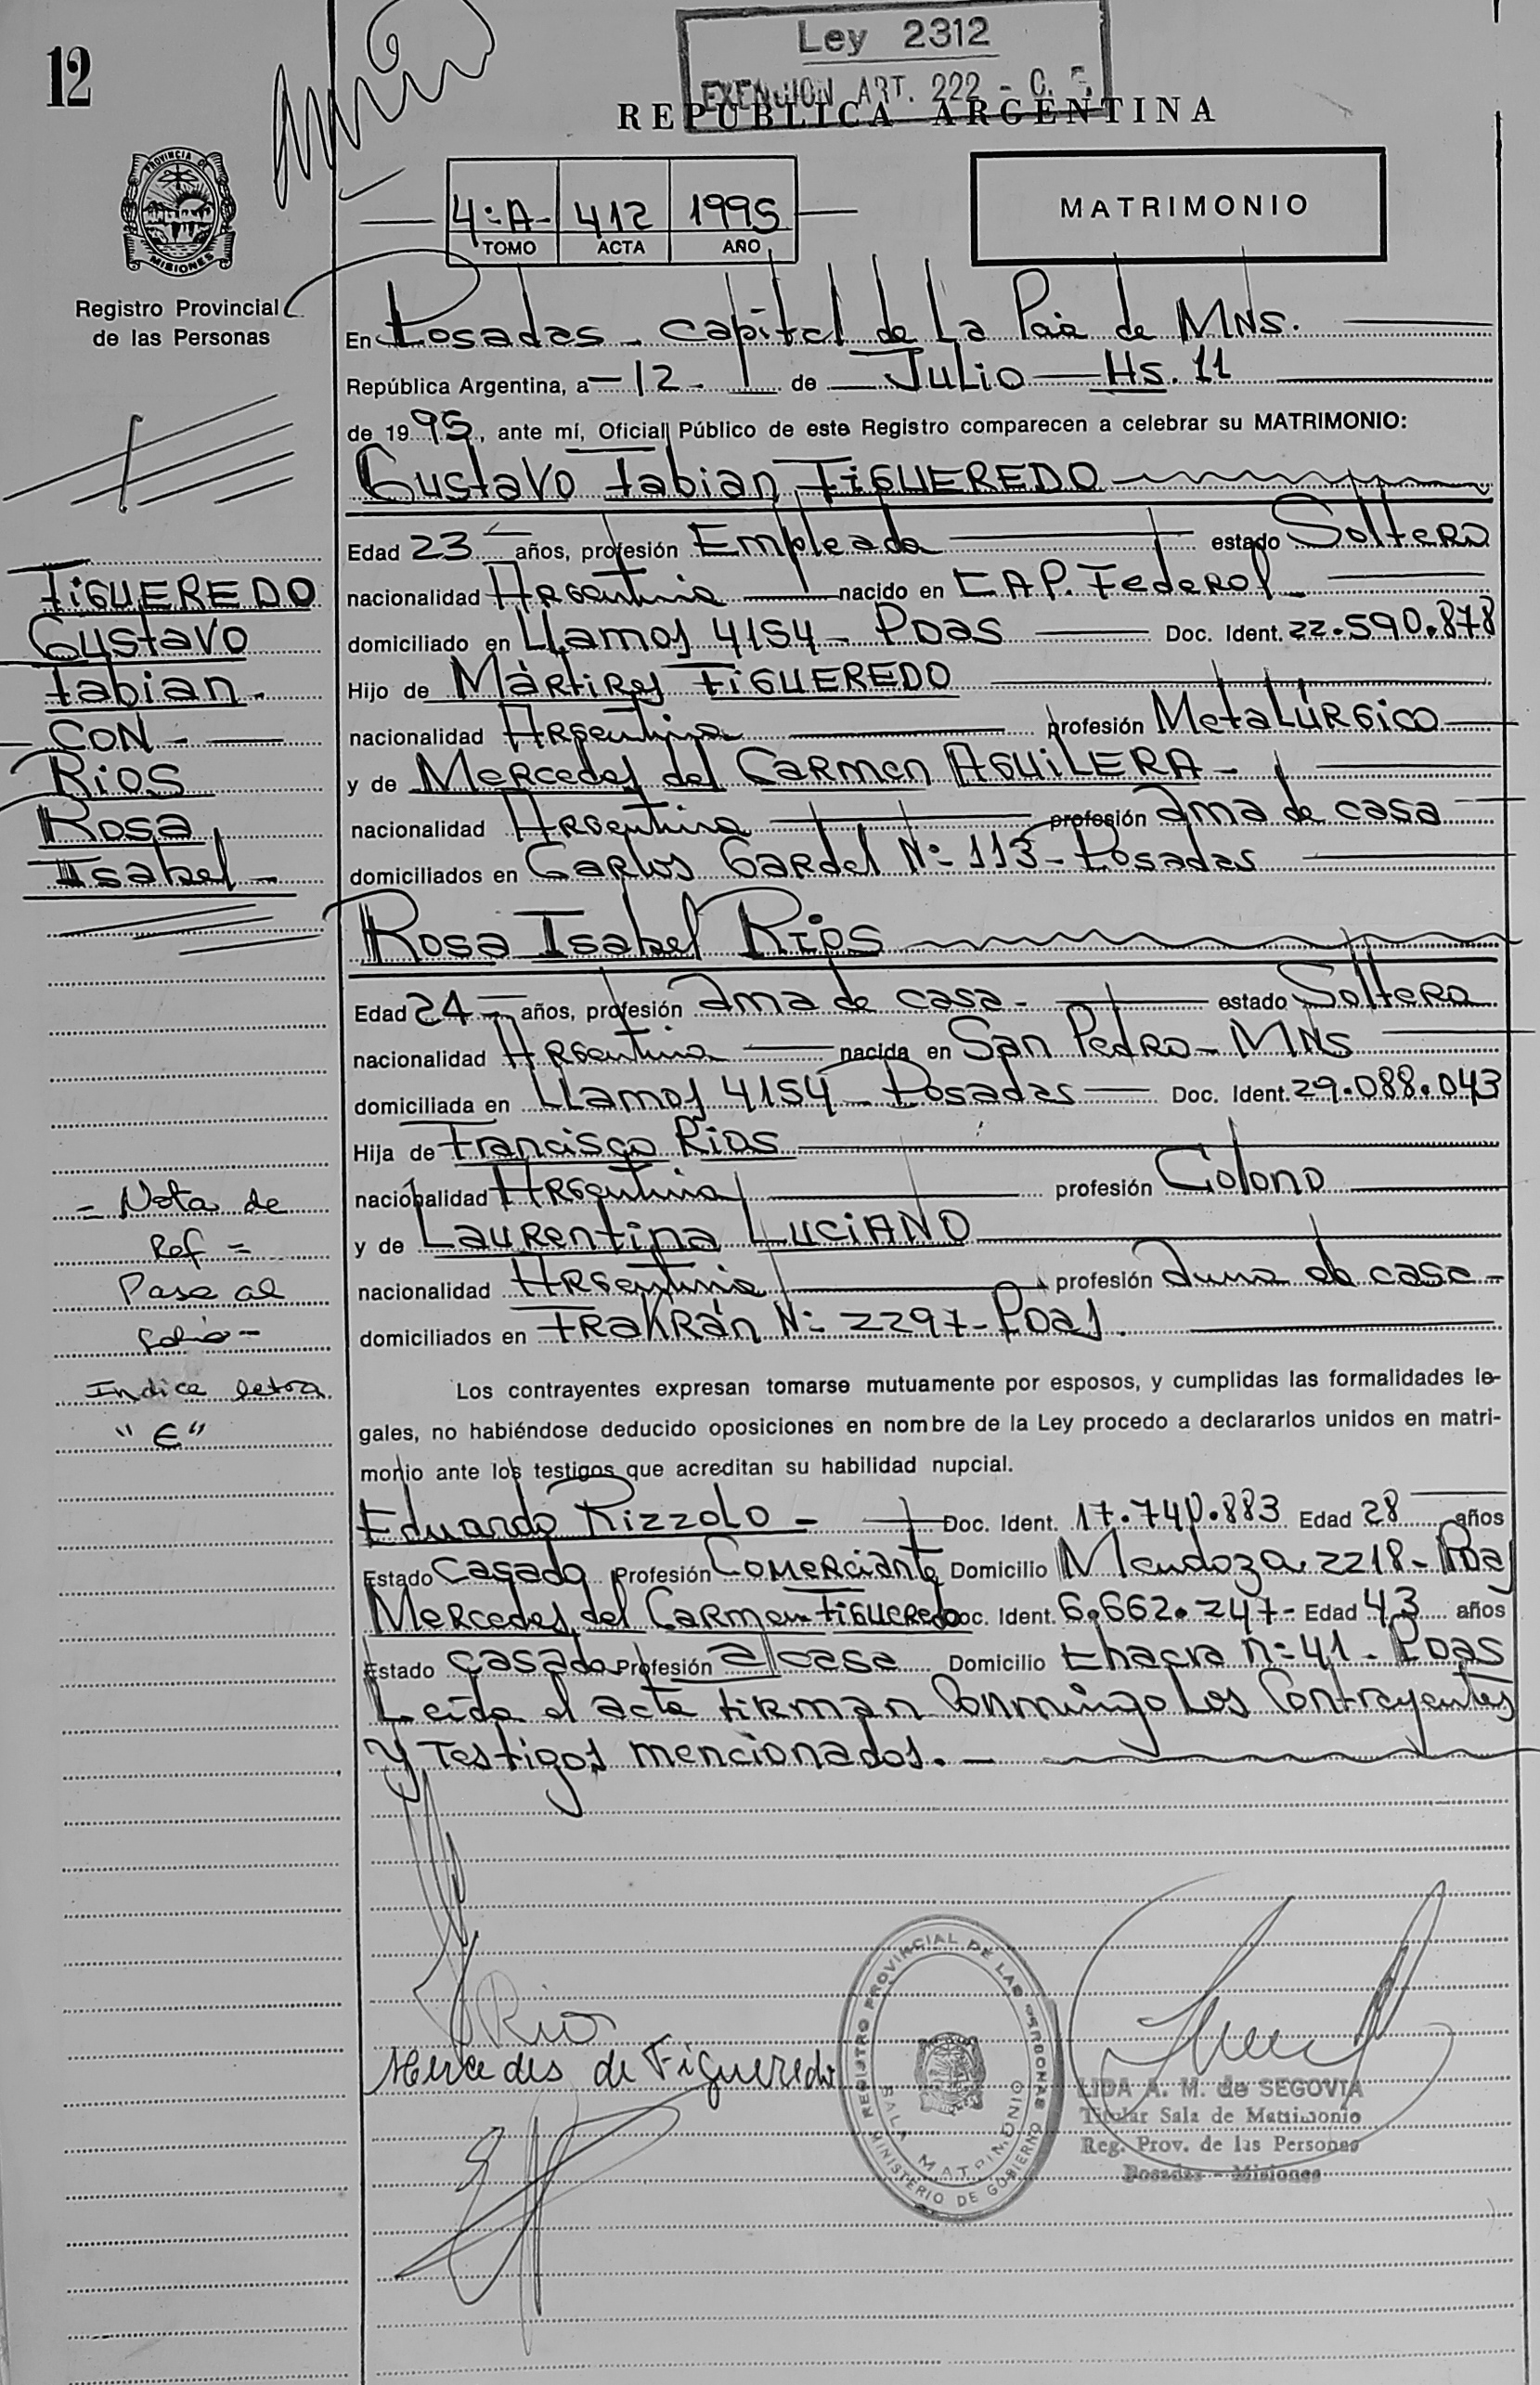 12
Ley 2312
EXENCION ART. 222 - C. F.
REPUBLICA ARGENTINA
4º-A- 412 1995
TOMO ACTA AÑO
MATRIMONIO
PROVINCIA DE MISIONES
Registro Provincial
de las Personas
En Posadas - Capital de La Pcia de MNS.
República Argentina, a -12- de Julio - Hs. 11
de 1995, ante mí, Oficial Público de este Registro comparecen a celebrar su MATRIMONIO:
Gustavo Fabian FIGUEREDO
Edad 23 años, profesión Empleado estado Soltero
nacionalidad Argentina nacido en CAP. Federal
domiciliado en LLamos 4154 - Pdas Doc. Ident. 22.590.878
Hijo de Mártires FIGUEREDO
nacionalidad Argentina profesión Metalúrgico
y de Mercedes del Carmen AGUILERA -
nacionalidad Argentina profesión ama de casa
domiciliados en Carlos Gardel Nº 113 - Posadas
FIGUEREDO
Gustavo
Fabian -
- CON -
Rios
Rosa
Isabel -
Rosa Isabel Rios
Edad 24 - años, profesión ama de casa - estado Soltera
nacionalidad Argentina nacida en San Pedro - MNS
domiciliada en LLamos 4154 - Posadas Doc. Ident. 29.088.043
Hija de Francisco Rios
nacionalidad Argentina profesión Colono
y de Laurentina LUCIANO
nacionalidad Argentina profesión ama de casa -
domiciliados en Frakrán Nº 2297 - Pdas.
= Nota de
Ref =
Pase al
folio -
Indice letra
"E"
Los contrayentes expresan tomarse mutuamente por esposos, y cumplidas las formalidades le-
gales, no habiéndose deducido oposiciones en nombre de la Ley procedo a declararlos unidos en matri-
monio ante los testigos que acreditan su habilidad nupcial.
Eduardo Rizzolo - Doc. Ident. 17.740.883 Edad 28 años
Estado Casado Profesión Comerciante Domicilio Mendoza 2218 - Pdas
Mercedes del Carmen Figueredo Doc. Ident. 6.662.247 - Edad 43 años
Estado casada Profesión a/casa Domicilio Chacra nº 41 - Pdas
Leída el acta firman conmigo Los Contrayentes
y Testigos mencionados. -
Rios
Mercedes de Figueredo
REGISTRO PROVINCIAL DE LAS PERSONAS
SALA MATRIMONIO
MINISTERIO DE GOBIERNO
LIDA A. M. de SEGOVIA
Titular Sala de Matrimonio
Reg. Prov. de las Personas
Posadas - Misiones